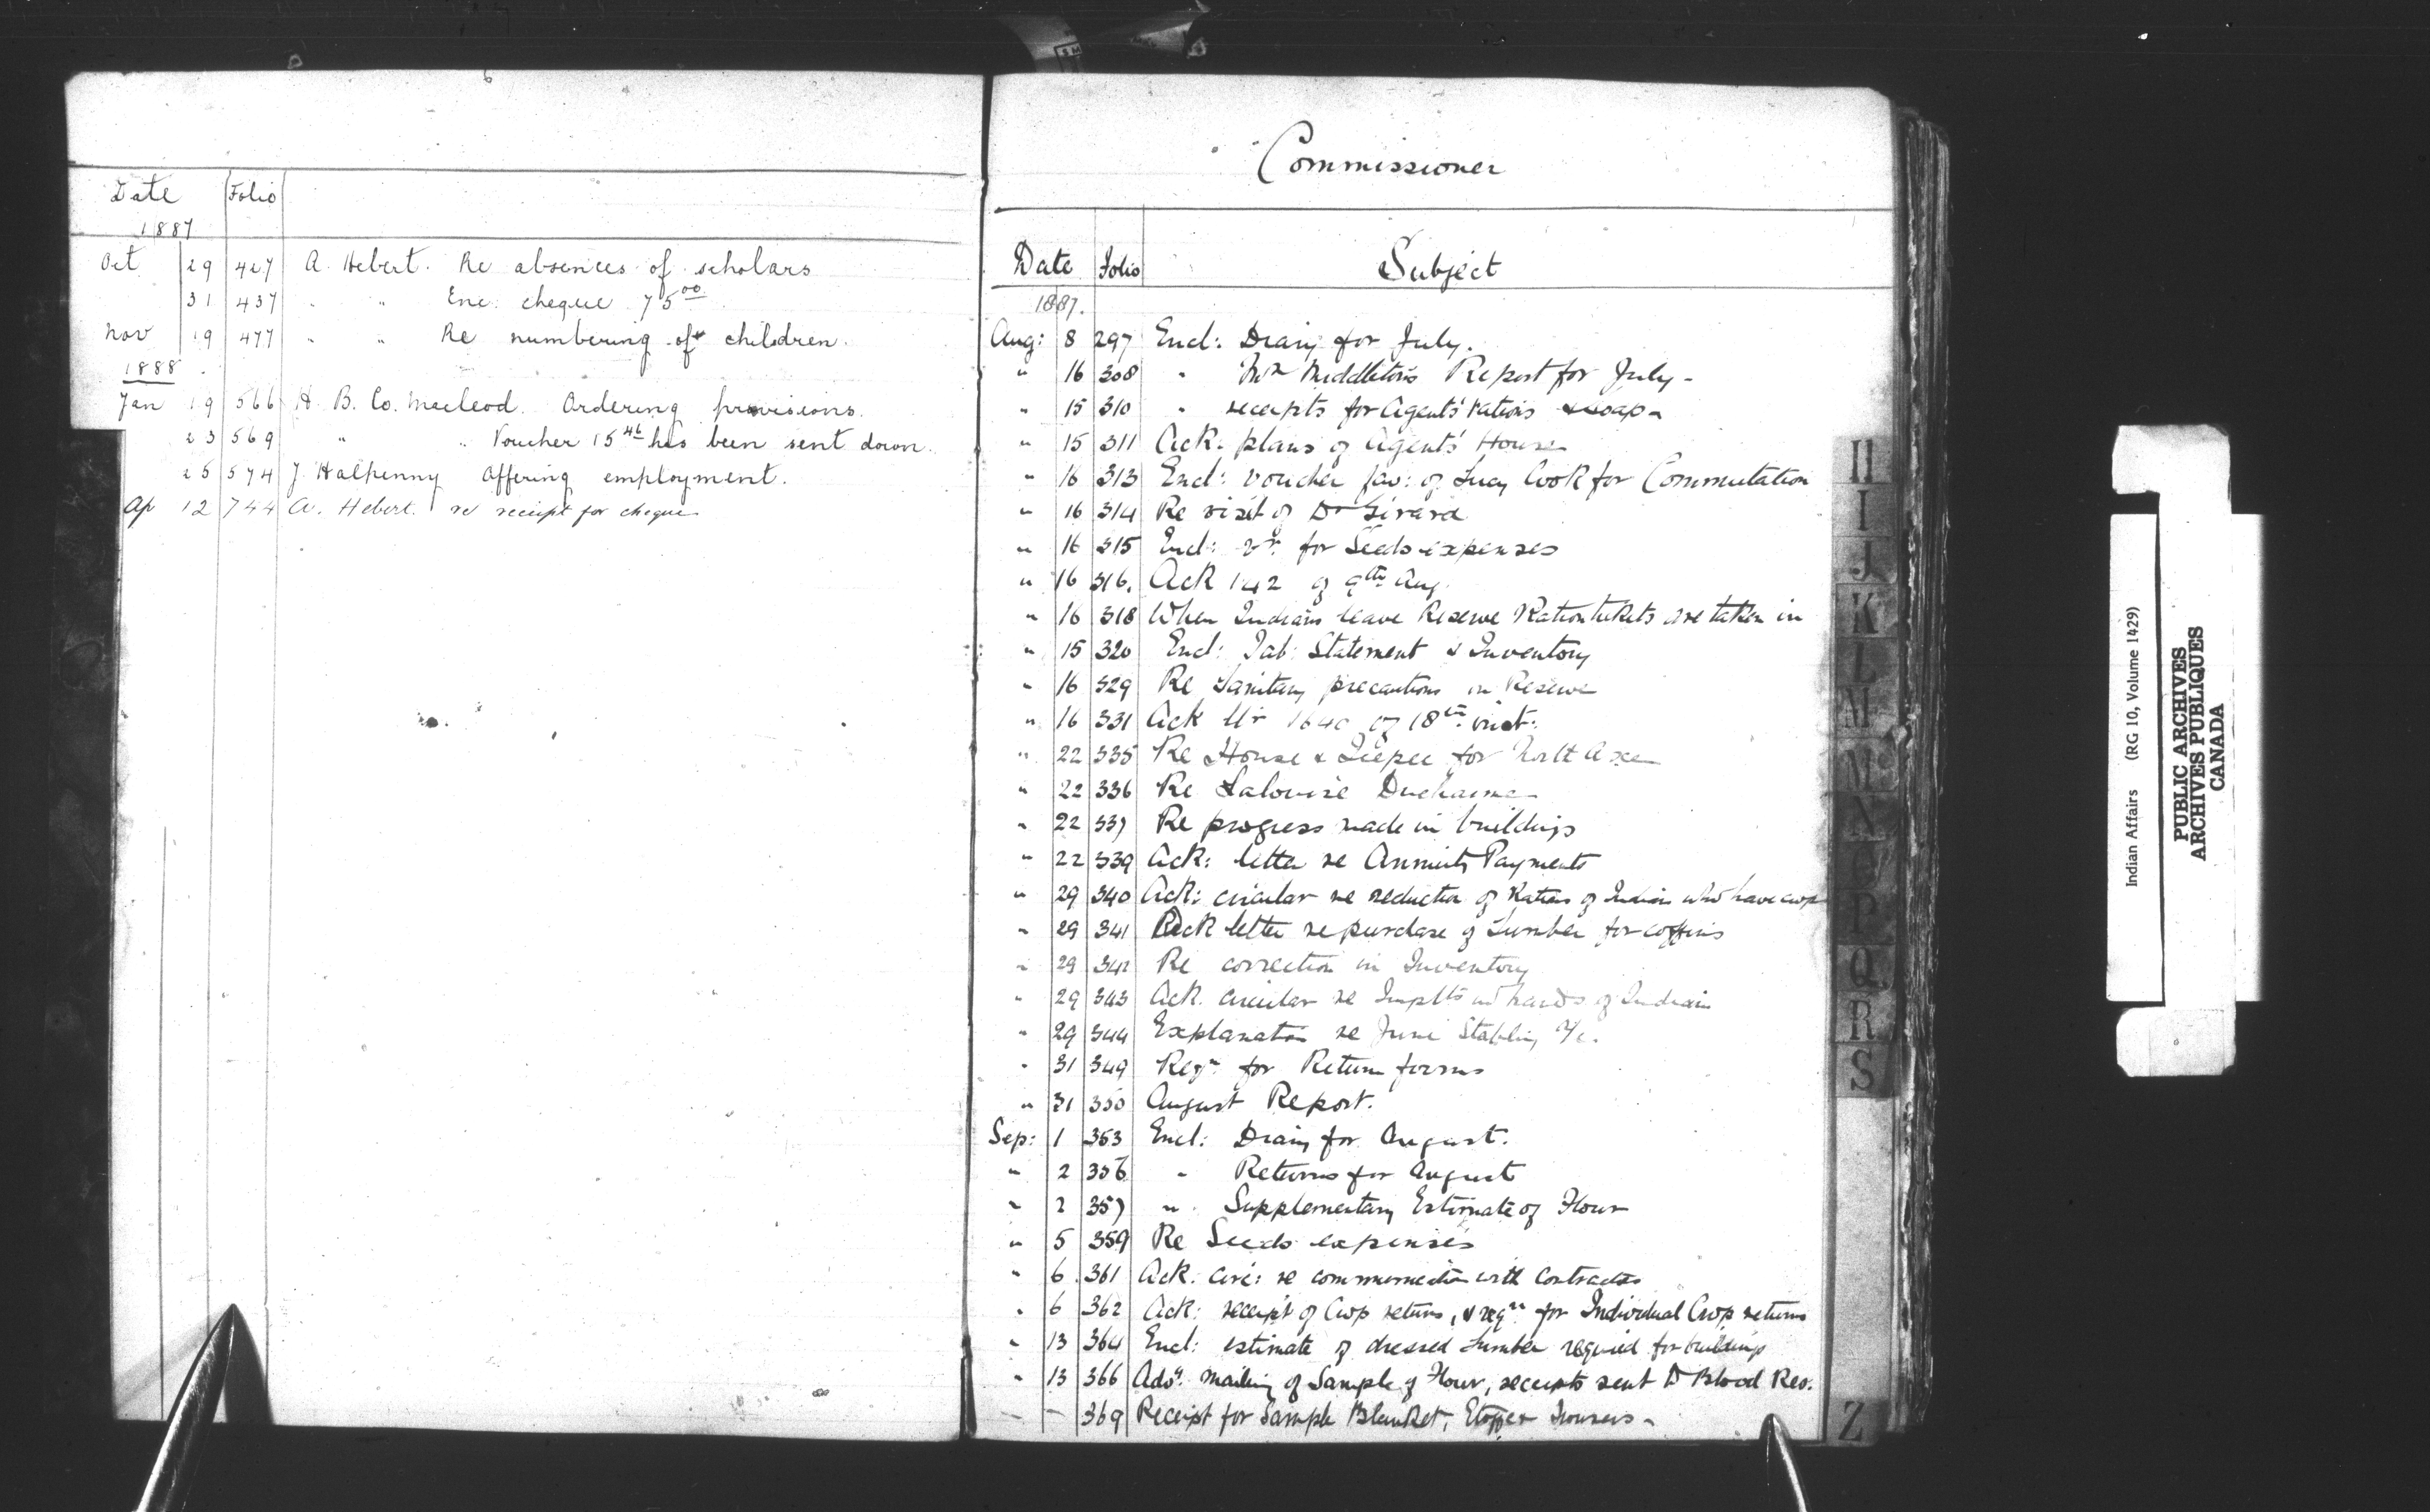 Date Folio
1887
Oct 29 427 A. Hebert. Re absences of scholars
31 437 " " Enc. cheque 75 00
Nov 19 477 " " Re numbering of children.
1888
Jan 19 566 H. B. Co. Macleod. Ordering provisions.
23 569 " " Voucher 15 46 has been sent down.
25 574 J. Halpenny Offering employment.
Ap 12 744 A. Hebert. re receipt for cheque
Commissioner
Date Folio Subject
1887.
Aug: 8 297 Encl: Diary for July.
" 16 308 " Middleton's Report for July -
" 15 310 " receipts for Agents' rations & soap -
" 15 311 Ack: plans of Agents' House
" 16 313 Encl: voucher fav: of Lucy Cook for Commutation
" 16 314 Re visit of Dr Girard
" 16 315 Encl: vr. for Seeds expenses
" 16 316. Ack 142 of 9th Aug.
" 16 318 When Indians leave Reserve Ration tickets are taken in
" 15 320 Encl: Tab: Statement & Inventory
" 16 329 Re Sanitary precautions in Reserve
" 16 331 Ack of 18th inst:
" 22 335 Re House & Teepee for North Axe
" 22 336 Re Lalouise Ducharme
" 22 337 Re progress made in buildings
" 22 339 Ack: letter re Annuity Payments
" 29 340 Ack: circular re reduction of Rations of Indians who have crops
" 29 341 Ack letter re purchase of Lumber for coffins
" 29 342 Re correction in Inventory
" 29 343 Ack. circular re Implts in hands of Indians
" 29 344 Explanation re June Stabling a/c.
" 31 349 Reqn. for Return forms
" 31 350 August Report.
Sep: 1 353 Encl: Diary for August.
" 2 356 " Returns for August
" 2 357 " Supplementary Estimate of Flour
" 5 359 Re Seeds expenses
" 6 361 Ack. circ: re communication with Contractors
" 6 362 Ack: receipt of Crop returns, & reqn for Individual Crop returns
" 13 364 Encl: estimate of dressed Lumber required for buildings
" 13 366 Adv. mailing of Sample of Flour, receipts sent to Blood Res.
" " 369 Receipt for Sample Blanket, Etoffe & Trousers -
H
I
J
K
L
M
Mc
N
O
P
Q
R
S
Z
Indian Affairs (RG 10, Volume 1429)
PUBLIC ARCHIVES
ARCHIVES PUBLIQUES
CANADA